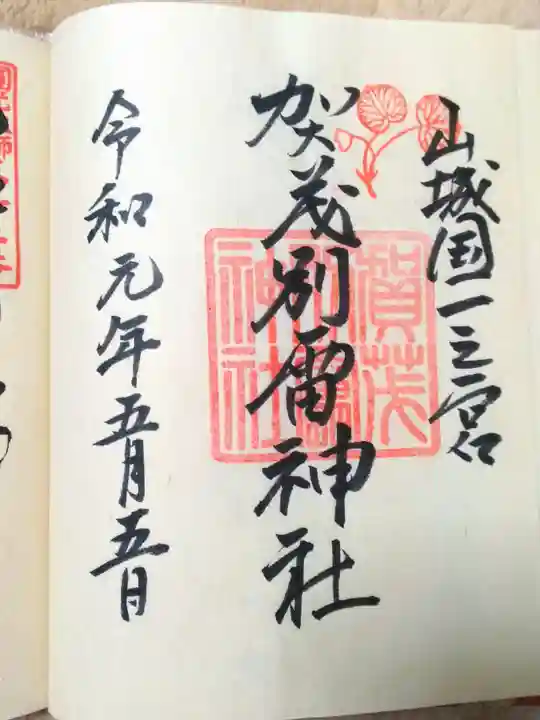 山城国一之宮
賀茂別雷神社
賀茂
別雷
神社
令和元年五月五日